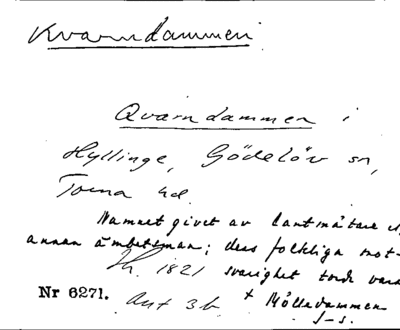 Kvarndammen
Qvarndammen i
Hyllinge, Gödelöv sn,
Torna hd.
Namnet givet av lantmätare el.
annan ämbetsman; dess folkliga mot-
Jh. 1821 svarighet torde vara
Nr 6271. Avt 3b + Mölledammen
J-s.